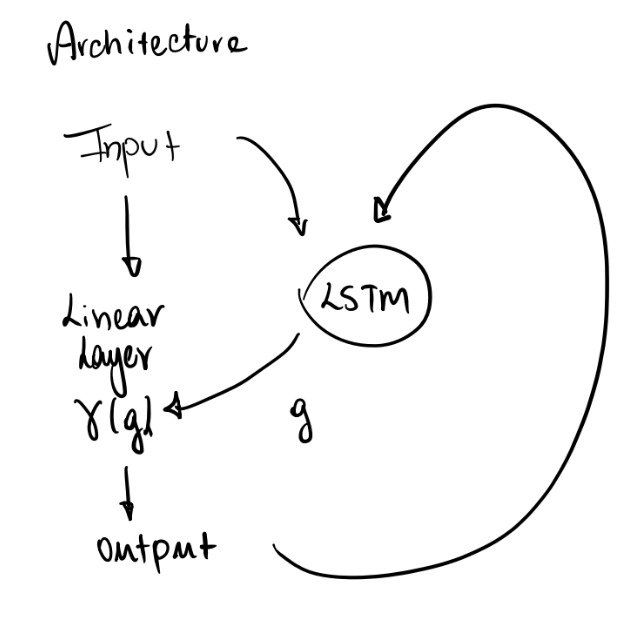 Architecture
Input
LSTM
Linear
Layer
γ(g)
g
output